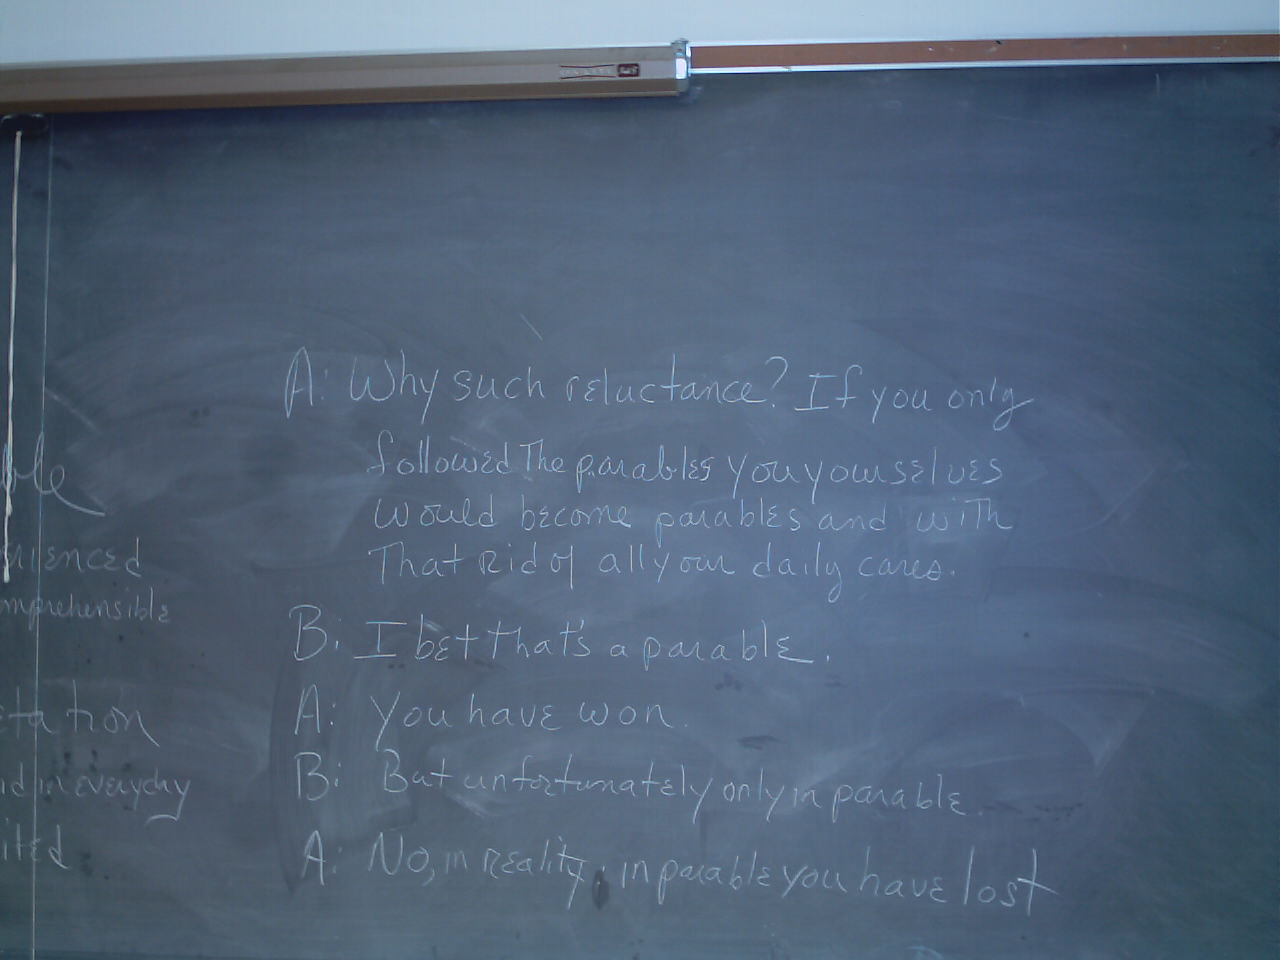 A: Why such reluctance? If you only
followed the parables you yourselves
would become parables and with
that rid of all your daily cares.
B: I bet that's a parable.
A: You have won.
B: But unfortunately only in parable.
A: No, in reality; in parable you have lost
ble
rienced
mprehensible
tation
id in everyday
ited